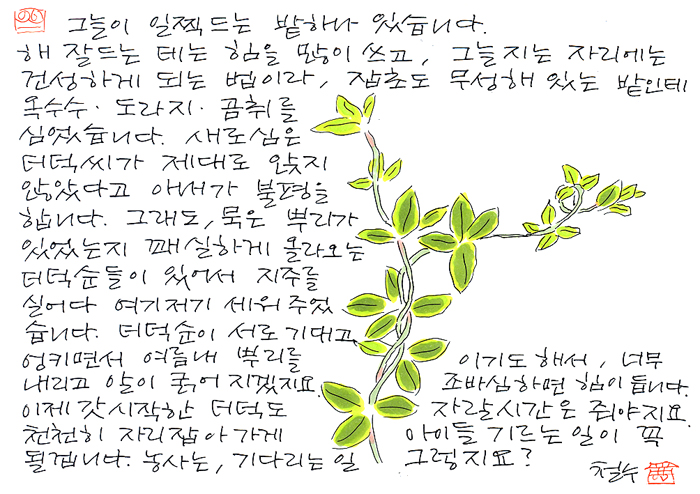 그늘이 일찍드는 밭하나 있습니다.
해 잘드는 데는 힘을 많이 쓰고, 그늘지는 자리에는
건성하게 되는 법이라, 잡초도 무성해 있는 밭인데
옥수수·도라지·곰취를
심었습니다. 새로심은
더덕씨가 제대로 앉지
않았다고 아서가 불평을
합니다. 그래도, 묵은 뿌리가
있었는지 꽤실하게 올라오는
더덕순들이 있어서 지주를
실어다 여기저기 세워주었
습니다. 더덕순이 서로기대고
엉키면서 여름내 뿌리를
내리고 알이 굵어지겠지요.
이제 갓시작한 더덕도
천천히 자리잡아가게
될겝니다. 농사는, 기다리는 일
이기도 해서, 너무
조바심하면 힘이듭니다.
자랄시간은 줘야지요.
아이들 기르는 일이 꼭
그렇지요?
철수